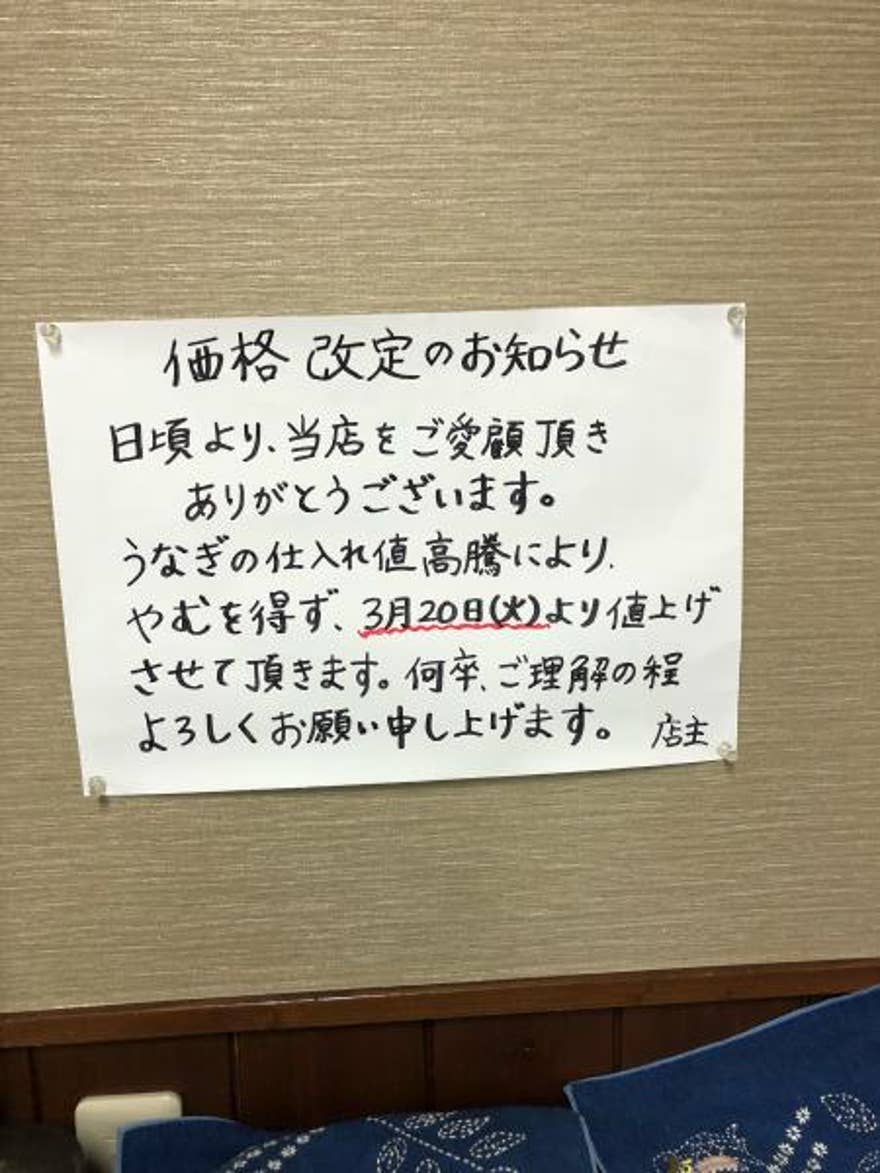 価格改定のお知らせ
日頃より、当店をご愛顧頂き
ありがとうございます。
うなぎの仕入れ値高騰により、
やむを得ず、3月20日(火)より値上げ
させて頂きます。何卒、ご理解の程
よろしくお願い申し上げます。 店主